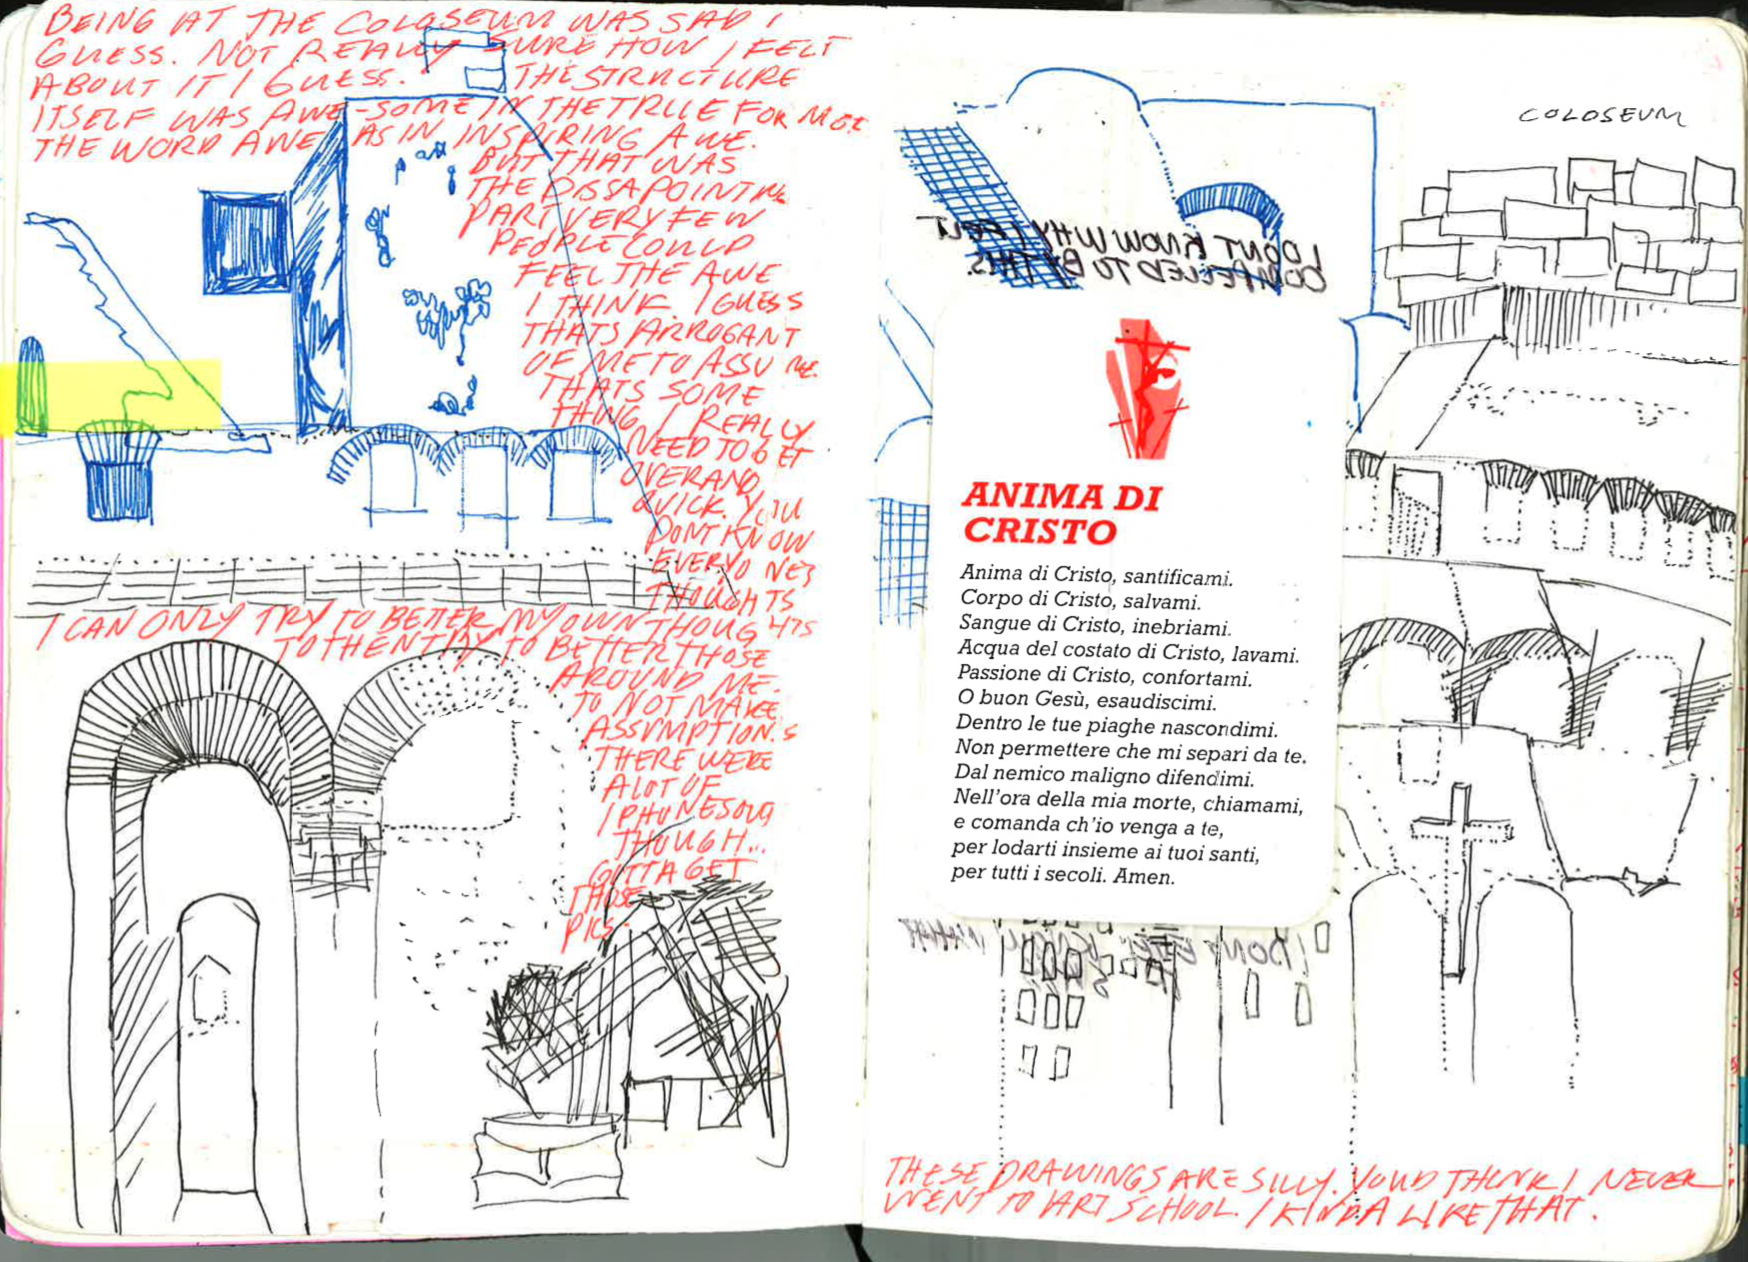 BEING AT THE COLOSEUM WAS SAD I
GUESS. NOT REALLY SURE HOW I FELT
ABOUT IT I GUESS. THE STRUCTURE
ITSELF WAS AWE-SOME IN THE TRUE FOR
THE WORD AWE AS IN INSPIRING AWE.
BUT THAT WAS
THE DISSAPOINTING
PART VERY FEW
PEOPLE COULD
FEEL THE AWE
I THINK. I GUESS
THATS ARROGANT
OF ME TO ASSUME.
THATS SOME
THING I REALLY
NEED TO GET
OVER AND
QUICK. YOU
DONT KNOW
EVERYONES
THOUGHTS
I CAN ONLY TRY TO BETTER MY OWN THOUGHTS
TO THEN TRY TO BETTER THOSE
AROUND ME.
TO NOT MAKE
ASSUMPTIONS
THERE WERE
A LOT OF
IPHONES OUT
THOUGH...
GOTTA GET
THOSE
PICS.
COLOSEUM
I DONT KNOW WHY I FELT
COMPELLED TO BY THIS.
ANIMA DI
CRISTO
Anima di Cristo, santificami.
Corpo di Cristo, salvami.
Sangue di Cristo, inebriami.
Acqua del costato di Cristo, lavami.
Passione di Cristo, confortami.
O buon Gesù, esaudiscimi.
Dentro le tue piaghe nascondimi.
Non permettere che mi separi da te.
Dal nemico maligno difendimi.
Nell'ora della mia morte, chiamami,
e comanda ch'io venga a te,
per lodarti insieme ai tuoi santi,
per tutti i secoli. Amen.
I DONT EVEN KNOW WHAT
THESE DRAWINGS ARE SILLY. YOUD THINK I NEVER
WENT TO ART SCHOOL. I KINDA LIKE THAT.